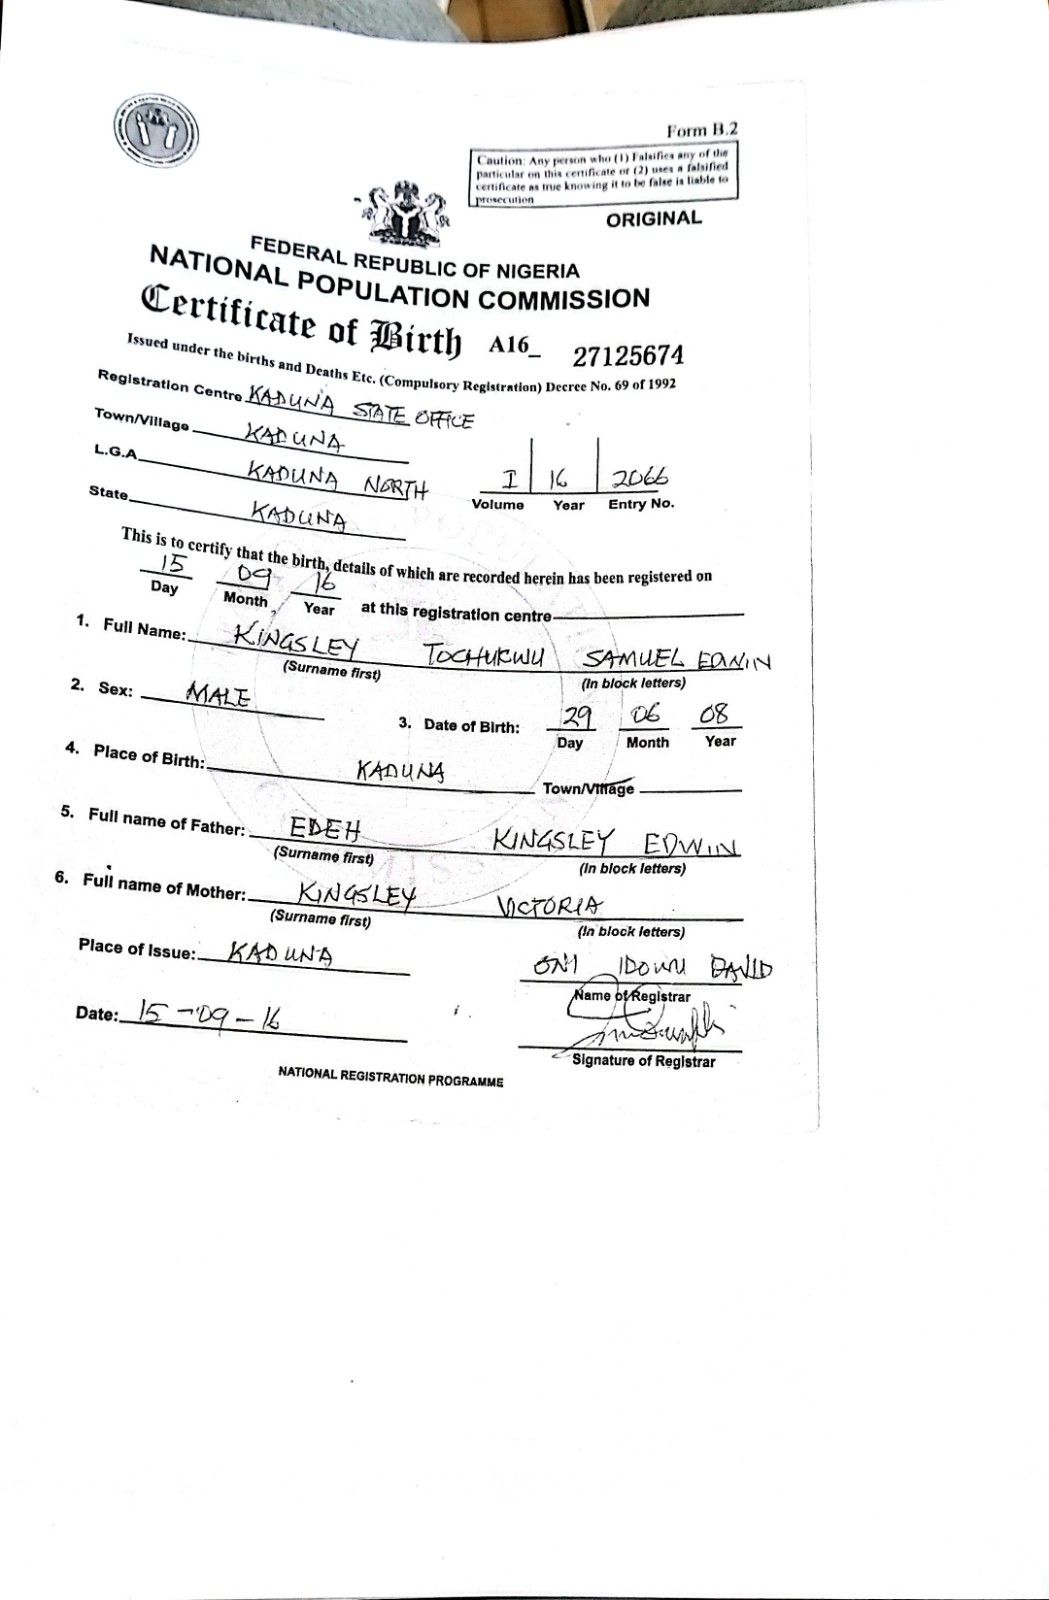 Form B.2
Caution: Any person who (1) Falsifies any of the
particular on this certificate or (2) uses a falsified
certificate as true knowing it to be false is liable to
prosecution
ORIGINAL
FEDERAL REPUBLIC OF NIGERIA
NATIONAL POPULATION COMMISSION
Certificate of Birth A16_ 27125674
Issued under the births and Deaths Etc. (Compulsory Registration) Decree No. 69 of 1992
Registration Centre KADUNA STATE OFFICE
Town/Village KADUNA
L.G.A KADUNA NORTH I 16 2066
Volume Year Entry No.
State KADUNA
This is to certify that the birth, details of which are recorded herein has been registered on
15 09 16
Day Month Year at this registration centre
1. Full Name: KINGSLEY TOCHUKWU SAMUEL EDWIN
(Surname first) (In block letters)
2. Sex: MALE 3. Date of Birth: 29 06 08
Day Month Year
4. Place of Birth: KADUNA Town/Village
5. Full name of Father: EDEH KINGSLEY EDWIN
(Surname first) (In block letters)
6. Full name of Mother: KINGSLEY VICTORIA
(Surname first) (In block letters)
Place of Issue: KADUNA ONI IDOWU DAVID
Name of Registrar
Date: 15-09-16
Signature of Registrar
NATIONAL REGISTRATION PROGRAMME